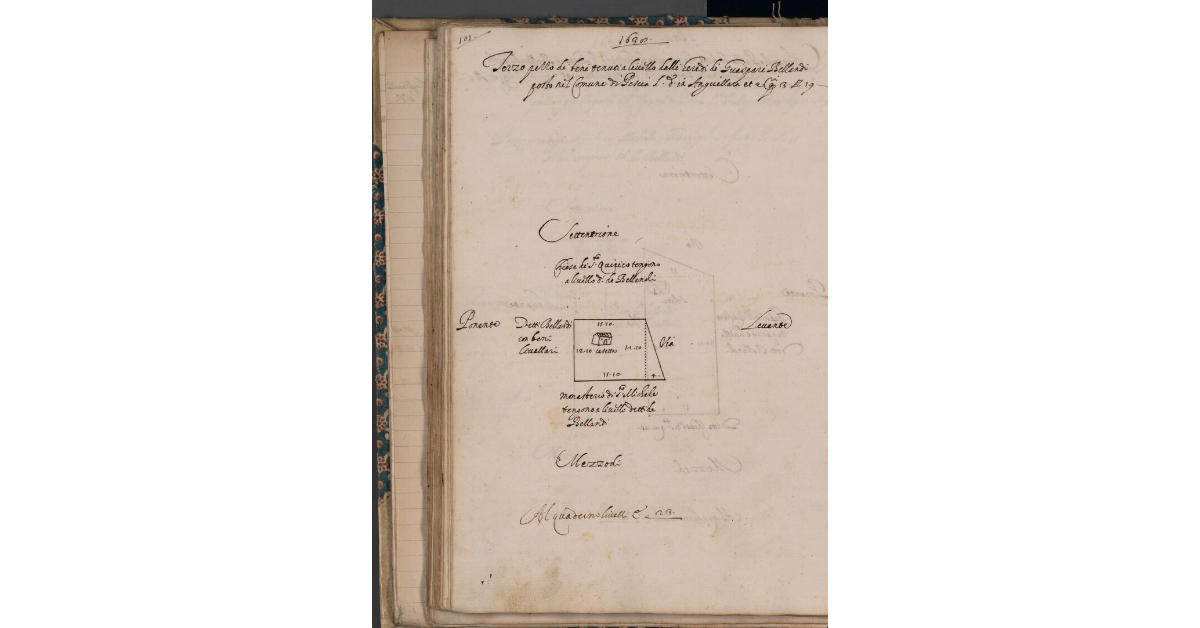 102
1630
Terzo pezzo de beni tenuti a livello dalle heredi di Guaspari Bellandi
posto nel Comune di Pescia l. d. in Anguillara et a
Settentrione
Chiesa di S. Quirico tengono
a livello d. de Bellandi
Ponente
Detti Bellandi
con beni
livellari
15.10
12.10 casetta 12.10
15.10
4
Via
Levante
monasterio di S. Michele
tengono a livello detti de
Bellandi
Mezzodi
Al quaderno livelli 23